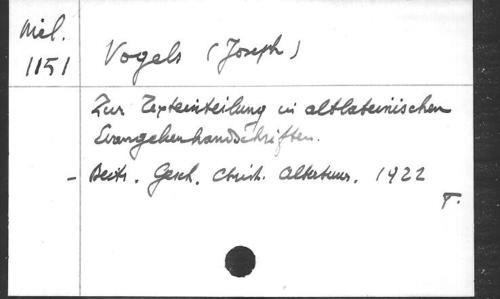 Mél.
1151
Vogels (Joseph)
Zur Texteinteilung in altlateinischen
Evangelienhandschriften.
- Beitr. Gesch. Christ. Altertums. 1922
T.